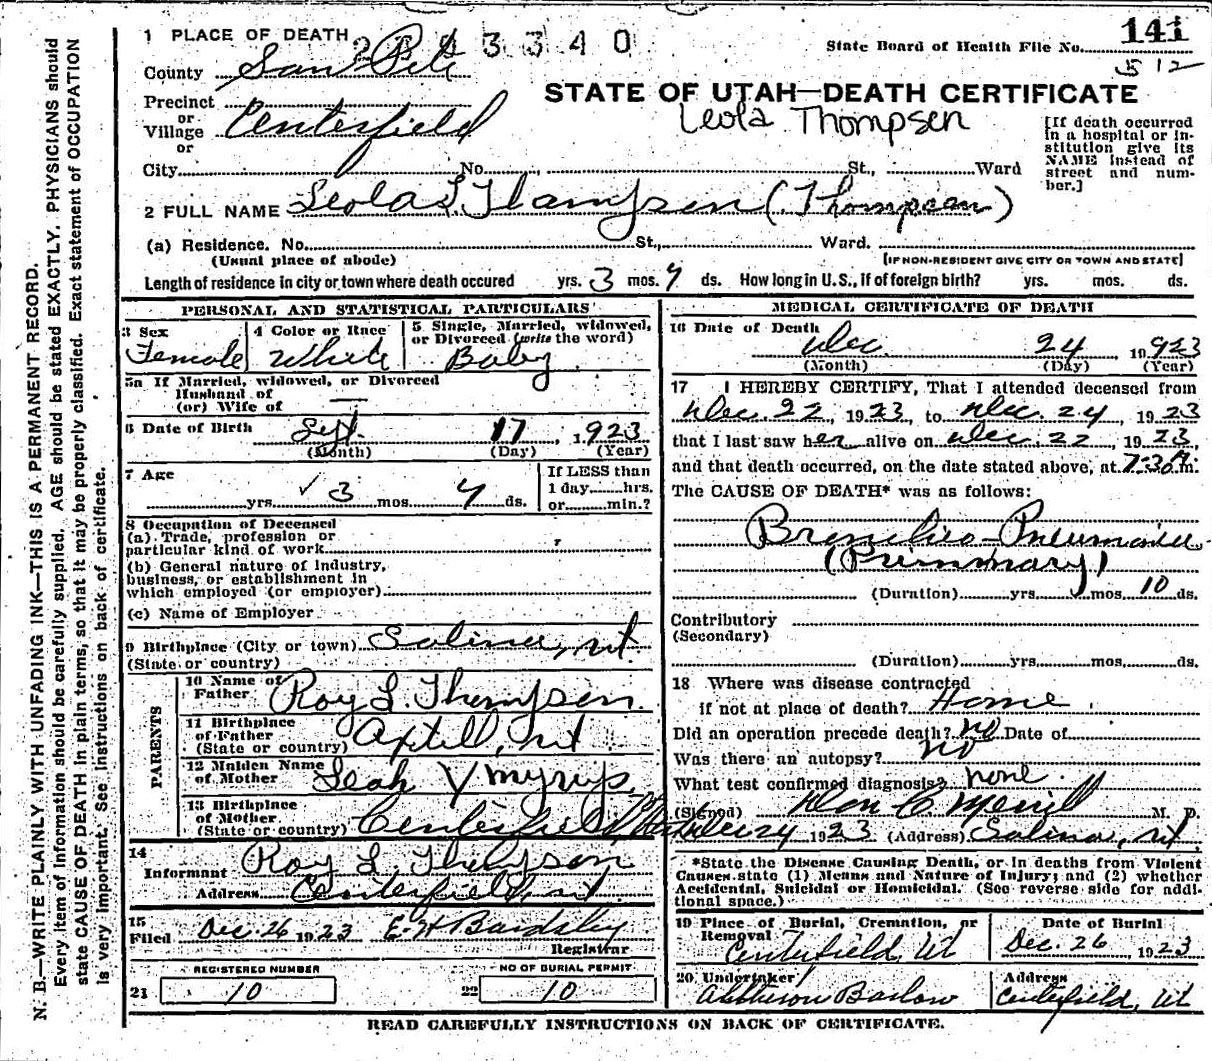 1 PLACE OF DEATH 2 3 3 4 0
State Board of Health File No. 141
512
County San Pete
STATE OF UTAH—DEATH CERTIFICATE
Precinct
or
Village Centerfield
or
Leola Thompsen
[If death occurred in a hospital or institution give its NAME instead of street and number.]
City No. St., Ward
2 FULL NAME Leola L. Thompsen (Thompson)
(a) Residence. No. St., Ward.
(Usual place of abode) [IF NON-RESIDENT GIVE CITY OR TOWN AND STATE]
Length of residence in city or town where death occured yrs. 3 mos. 7 ds. How long in U.S., if of foreign birth? yrs. mos. ds.
PERSONAL AND STATISTICAL PARTICULARS
3 Sex Female
4 Color or Race White
5 Single, Married, widowed, or Divorced (write the word) Baby
5a If Married, widowed, or Divorced
Husband of
(or) Wife of —
6 Date of Birth Sept. 17, 1923
(Month) (Day) (Year)
7 Age yrs. 3 mos. 7 ds.
If LESS than
1 day hrs.
or min.?
8 Occupation of Deceased
(a) Trade, profession or
particular kind of work
(b) General nature of Industry,
business, or establishment in
which employed (or employer)
(c) Name of Employer
9 Birthplace (City or town) Salina, Ut.
(State or country)
PARENTS
10 Name of Father Roy L. Thompsen.
11 Birthplace of Father (State or country) Axtell, Ut
12 Maiden Name of Mother Leah V
13 Birthplace of Mother (State or country) Centerfield
14
Informant Roy L. Thompson
Address Centerfield, Ut.
15
Filed Dec. 26 1923 E. H. Bardsley
Registrar
REGISTERED NUMBER
21 10
NO OF BURIAL PERMIT
22 10
MEDICAL CERTIFICATE OF DEATH
16 Date of Death Dec 24 1923
(Month) (Day) (Year)
17 I HEREBY CERTIFY, That I attended deceased from
Dec. 22, 1923, to Dec. 24, 1923
that I last saw her alive on Dec. 22, 1923,
and that death occurred, on the date stated above, at 7-30 m.
The CAUSE OF DEATH* was as follows:
Broncho-Pneumonia
(Primmary)
(Duration) yrs. mos. 10 ds.
Contributory
(Secondary)
(Duration) yrs. mos. ds.
18 Where was disease contracted
if not at place of death? Home
Did an operation precede death? no Date of
Was there an autopsy? no
What test confirmed diagnosis? none
(Signed) C. Merrill M. D.
1923 (Address) Salina, Ut.
*State the Disease Causing Death, or in deaths from Violent
Causes state (1) Means and Nature of Injury; and (2) whether
Accidental, Suicidal or Homicidal. (See reverse side for addi-
tional space.)
19 Place of Burial, Cremation, or Removal Centerfield, Ut
Date of Burial Dec. 26, 1923
20 Undertaker Barlow
Address Centerfield, Ut
READ CAREFULLY INSTRUCTIONS ON BACK OF CERTIFICATE.
N. B.—WRITE PLAINLY WITH UNFADING INK—THIS IS A PERMANENT RECORD.
Every item of information should be carefully supplied. AGE should be stated EXACTLY. PHYSICIANS should
state CAUSE OF DEATH in plain terms, so that it may be properly classified. Exact statement of OCCUPATION
is very important. See instructions on back of certificate.